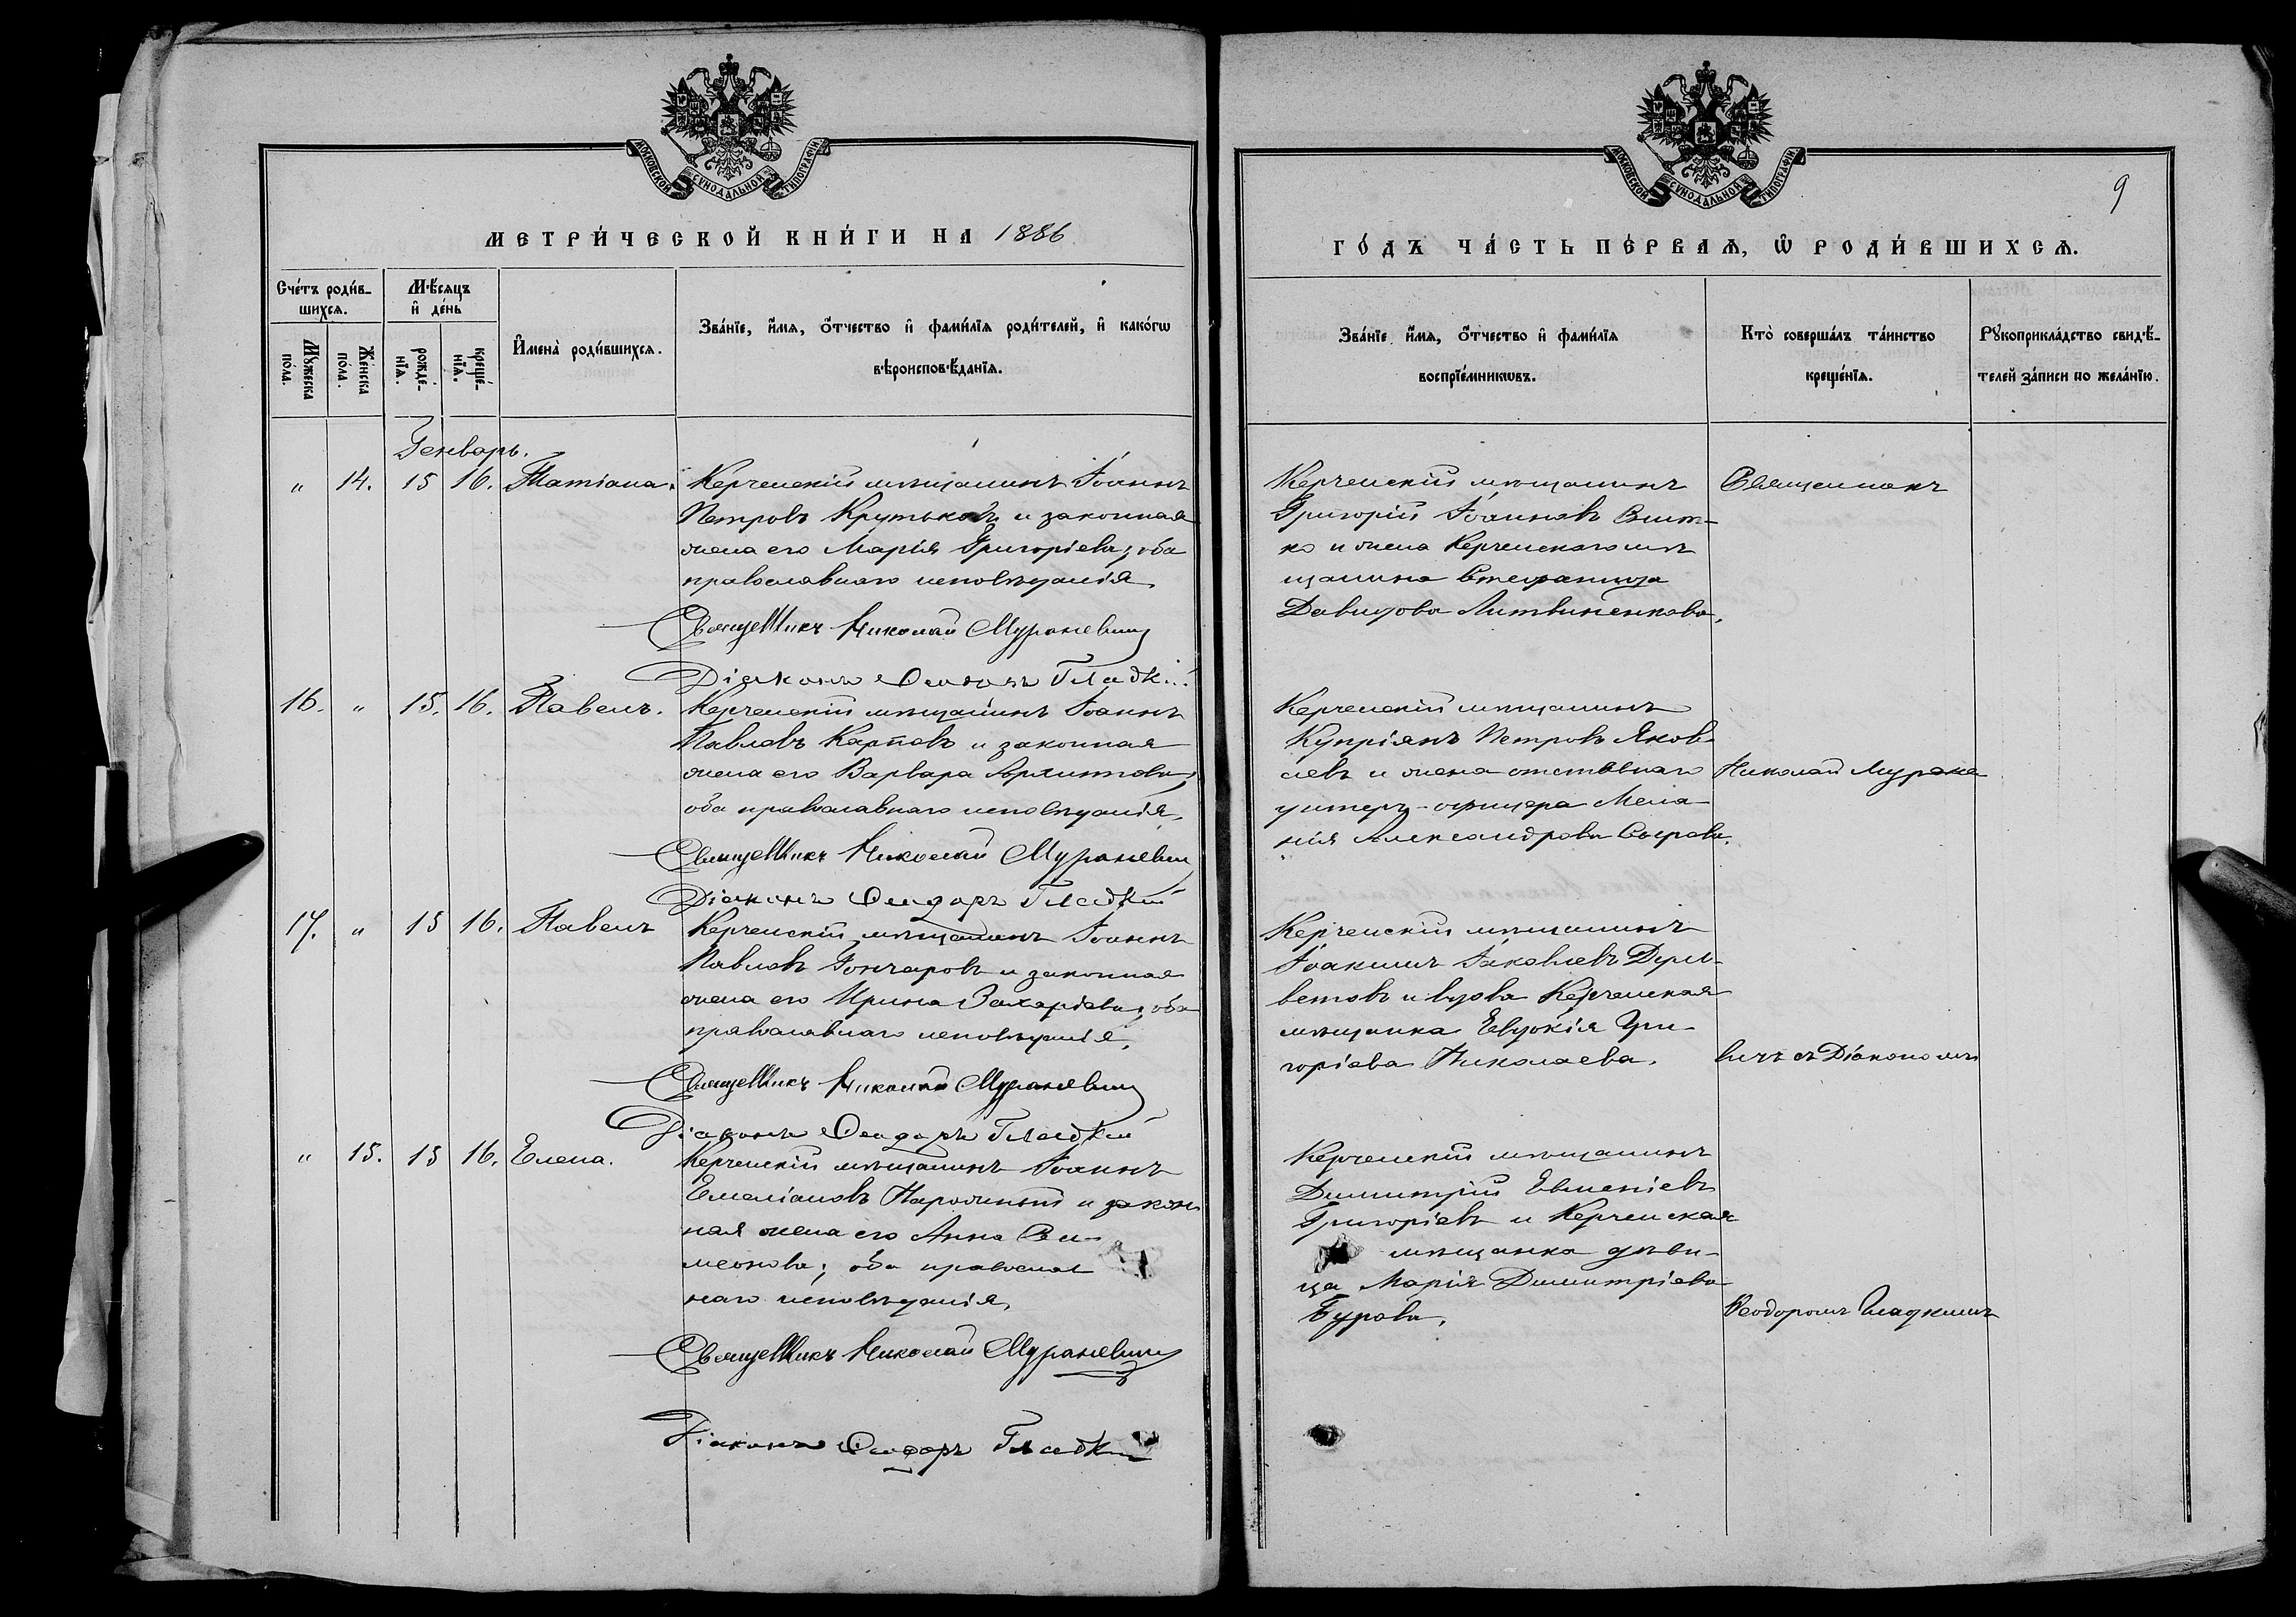 МОСКОВСКОЙ СУНОДАЛЬНОЙ ТИПОГРАФІИ
МЕТРИ́ЧЕСКОЙ КНИ́ГИ НА 1886
Сче́тъ роди́в-
шихся.
Мѣ́сяцъ
и҆ де́нь
Мꙋ́жеска
по́ла.
Же́нска
по́ла.
рожде́-
нїя.
креще́-
нїя.
И҆мена̀ роди́вшихся.
Зва́нїе, и҆́мя, ѻ҆́тчество и҆ фами́лїя роди́телей, и҆ како́гѡ
вѣроисповѣ́данїя.
Генварь.
" 14. 15 16. Татіана.
Керченскій мѣщанинъ Іоаннъ
Петровъ Крутьковъ и законная
жена его Марія Григоріева; оба
православнаго исповѣданія.
Священникъ Николай Мураневичъ
Діаконъ Ѳеодоръ Гладкій
16. " 15. 16. Павелъ.
Керченскій мѣщанинъ Іоаннъ
Павловъ Карповъ и законная
жена его Варвара Архиппова;
оба православнаго исповѣданія.
Священникъ Николай Мураневичъ
Діаконъ Ѳеодоръ Гладкій
17. " 15 16. Павелъ
Керченскій мѣщанинъ Іоаннъ
Павловъ Гончаровъ и законная
жена его Ирина Захаріева; оба
православнаго исповѣданія.
Священникъ Николай Мураневичъ
Діаконъ Ѳеодоръ Гладкій
" 15. 15 16. Елена.
Керченскій мѣщанинъ Іоаннъ
Емеліановъ и закон
ная жена его Анна Си-
меонова; оба православ
наго исповѣданія.
Священникъ Николай Мураневичъ
Діаконъ Ѳеодоръ Гладкій
МОСКОВСКОЙ СУНОДАЛЬНОЙ ТИПОГРАФІИ
9
ГО́ДЪ ЧА́СТЬ ПЕ́РВАЯ, Ѡ҆ РОДИ́ВШИХСЯ.
Зва́нїе и҆́мя, ѻ҆́тчество и҆ фами́лїя
воспрїе́мникѡвъ.
Кто̀ соверша́лъ та́инство
креще́нїя.
Рꙋкоприкла́дство свидѣ́-
телей за́писи по жела́нїю.
Керченскій мѣщанинъ
Григорій Іоанновъ
ко и жена Керченскаго мѣ
щанина Стефанида
Давидова Литвиненкова.
Керченскій мѣщанинъ
Купріянъ Петровъ Яков-
левъ и жена отставнаго
унтеръ-офицера Мела-
нія Александрова
Керченскій мѣщанинъ
Іоакимъ Іаковлевъ
ветовъ и вдова Керченская
мѣщанка Евдокія Гри-
горіева Николаева.
Керченскій мѣщанинъ
Димитрій Евменіевъ
Григорьевъ и Керченская
мѣщанка дѣви-
ца Марія Димитріева
Бурова.
Священникъ
Николай Муране
вичъ съ Діакономъ
Ѳеодоромъ Гладкимъ